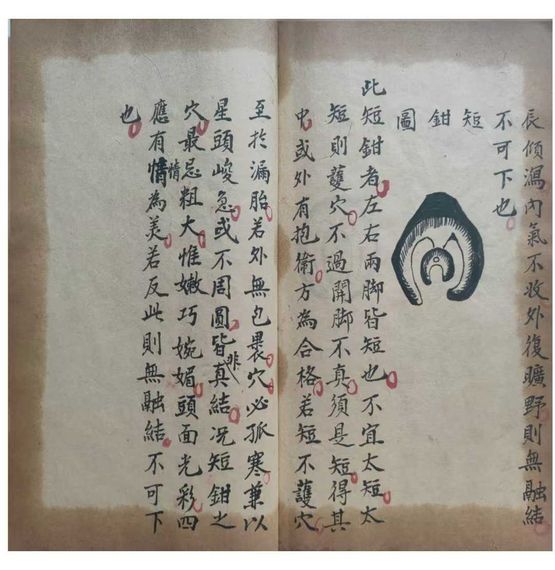 辰傾瀉內氣不收外復曠野則無融結
不可下也
短鉗圖
此短鉗者左右兩脚皆短也不宜太短太
短則護穴不過開脚不真須是短得其
中或外有抱衛方為合格若短不護穴
至於漏胎若外無包裹穴必孤寒兼以
星頭峻急或不周圓皆非真結況短鉗之
穴最忌粗大惟嫩巧婉媚頭面光彩四
應有情為美若反此則無融結不可下
也